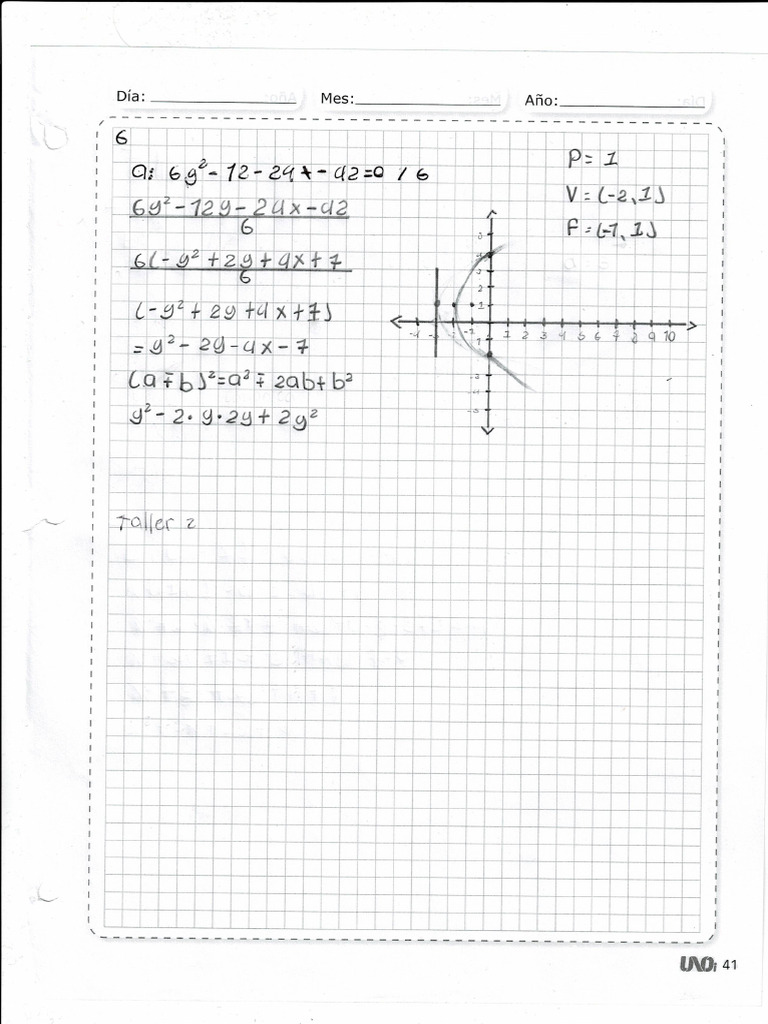 Día: Mes: Año:
6
a: 6y² - 12 - 24x - 42 = 0 / 6
6y² - 12y - 24x - 42
6
6(-y² + 2y + 4x + 7
6
(-y² + 2y + 4x + 7)
= y² - 2y - 4x - 7
(a ∓ b)² = a² ∓ 2ab + b²
y² - 2 · y · 2y + 2y²
P = 1
V = (-2, 1)
F = (-1, 1)
1 2 3 4 5 6 7 8 9 10
Taller 2
UNOi 41